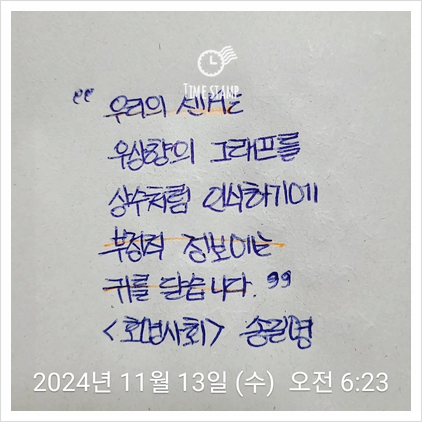 TIME STAMP
“ 우리의 센서는
우상향의 그래프를
상수처럼 인식하기에
부정적 정보에는
귀를 닫습니다. ”
<호명사회> 송길영
2024년 11월 13일 (수) 오전 6:23